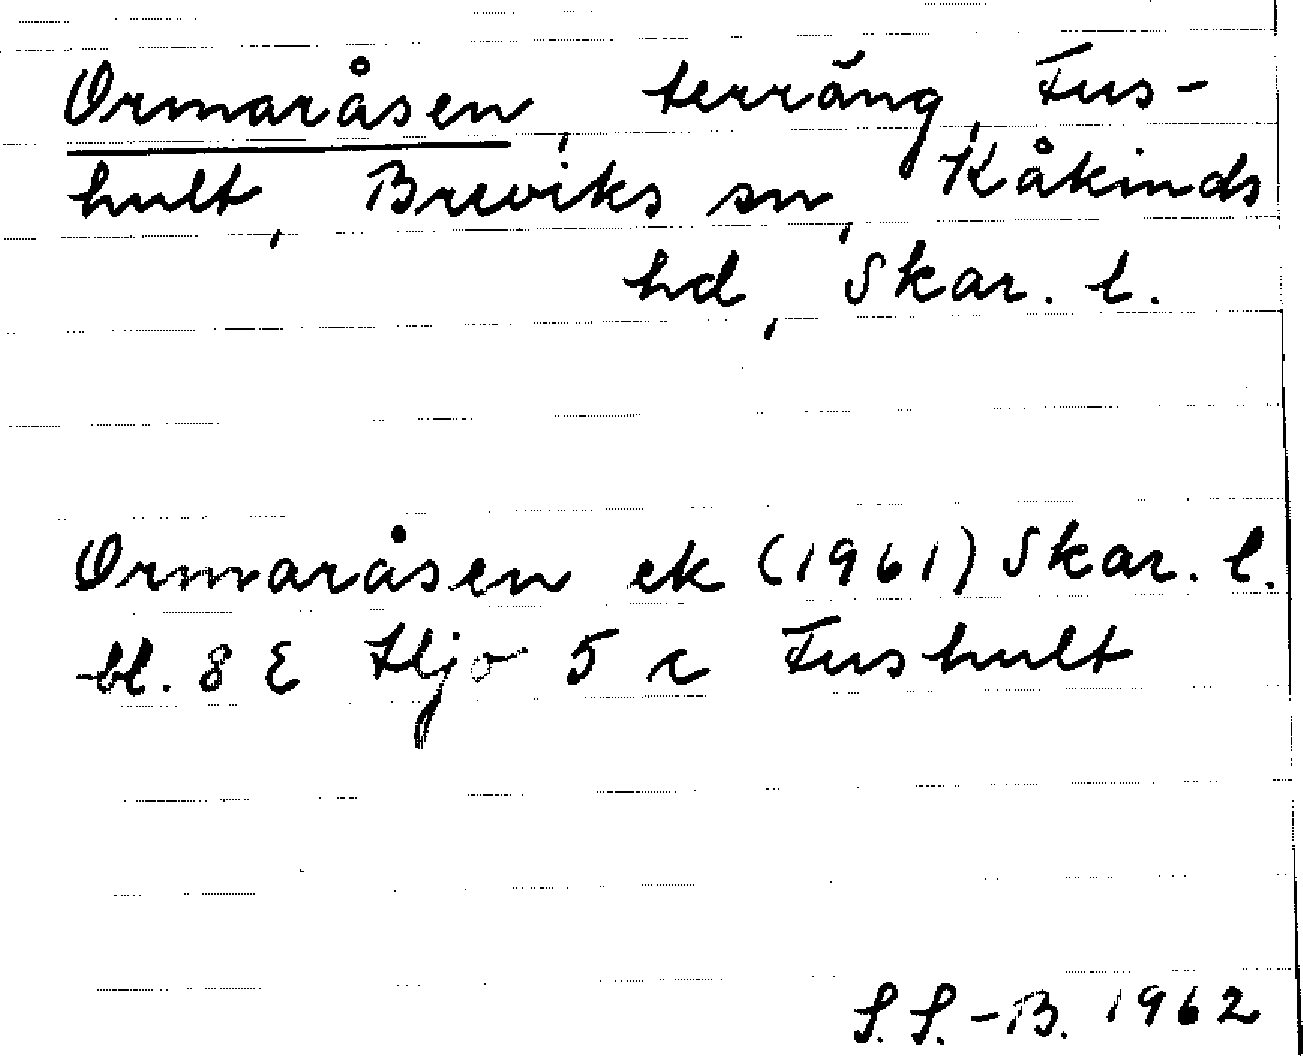 Ormaråsen, terräng, Fus-
hult, Breviks sn, Kåkinds
hd, Skar. l.
Ormaråsen ek (1961) Skar. l.
bl. 8 E Hjo 5 c Fushult
S. S.-B. 1962